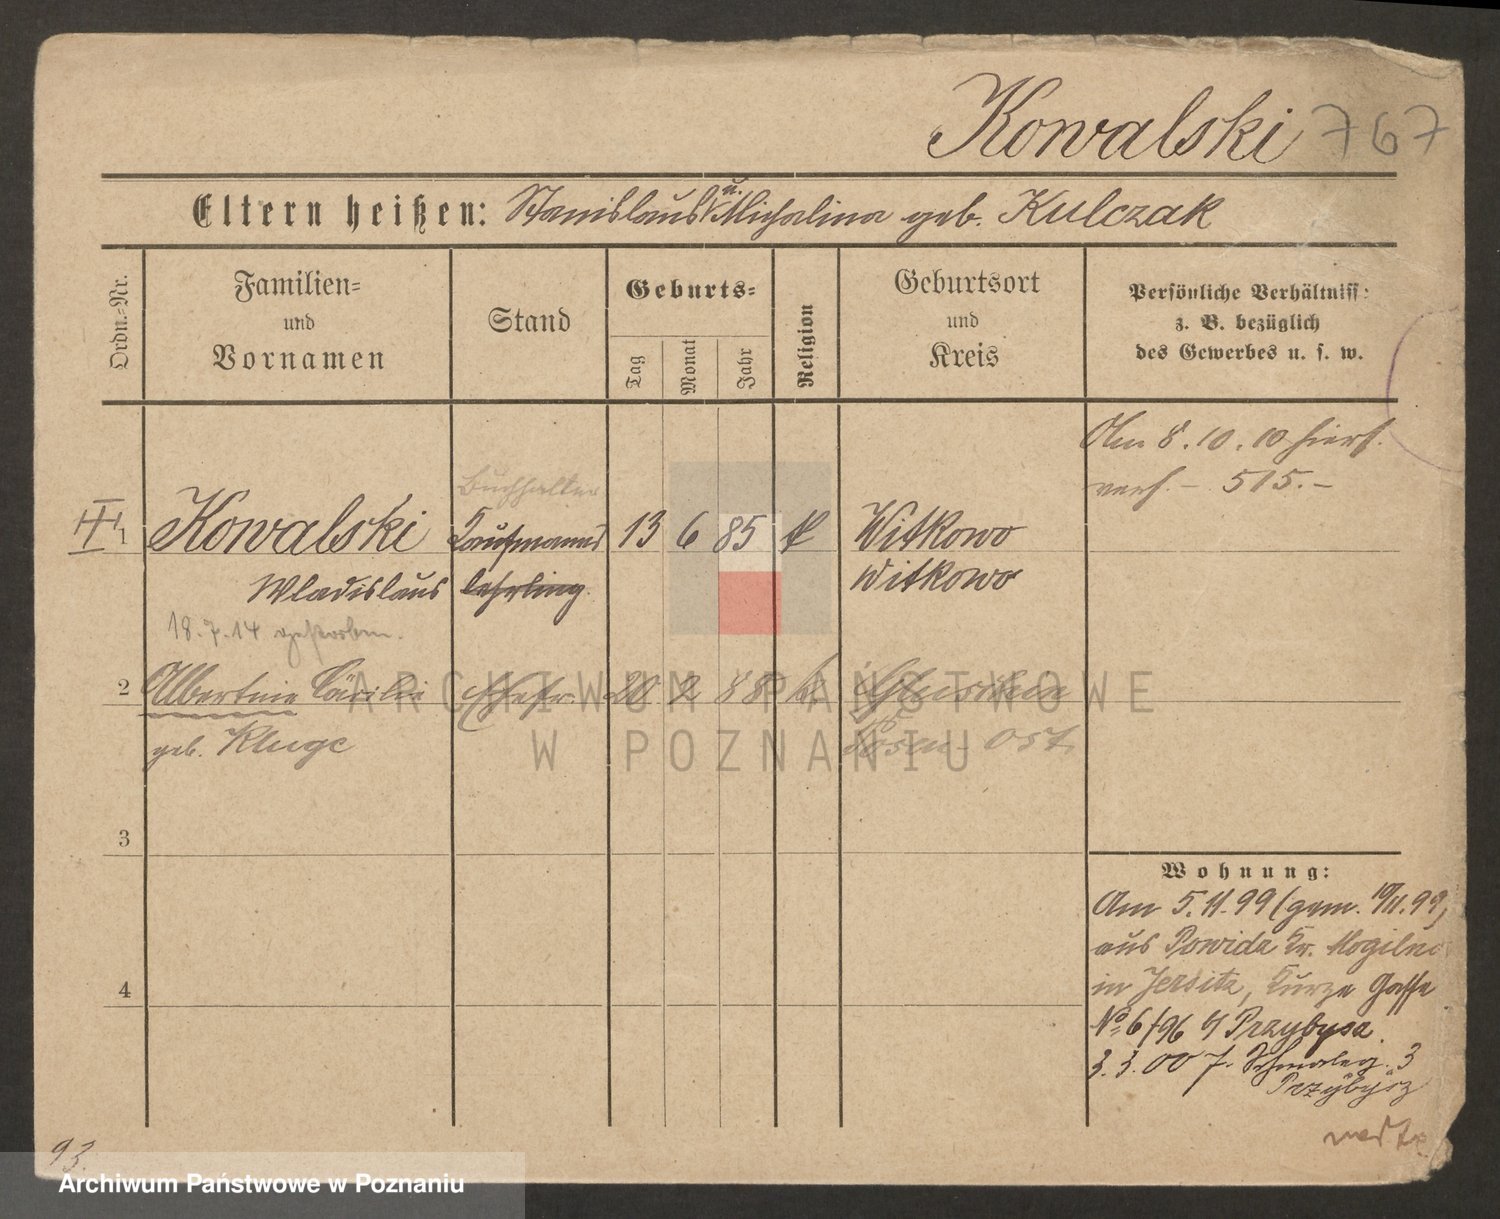 Kowalski 767
Eltern heißen: Stanislaus u. Michalina geb. Kulczak
Ordn.-Nr.
Familien-
und
Vornamen
Stand
Geburts-
Tag
Monat
Jahr
Religion
Geburtsort
und
Kreis
Persönliche Verhältniss:
z. B. bezüglich
des Gewerbes u. s. w.
Am 8.10.10 hiers.
verh. - 515.-
Buchhalter
III 1 Kowalski Kaufmanns 13 6 85 k Witkowo
Wladislaus lehrling Witkowo
18.7.14 gestorben.
2 Albertine Cäcilie Ehefr. 20 2 88 k
geb. Kluge Posen-Ost.
3
4
Wohnung:
Am 5.11.99 (gem. 10/11.99)
aus Powidz Kr. Mogilno
in Jersitz, Kurze Gasse
No 6/96 b/ Przybysz
3.3.00 7. 3
Przybysz
93.
ARCHIWUM PAŃSTWOWE
W POZNANIU
Archiwum Państwowe w Poznaniu